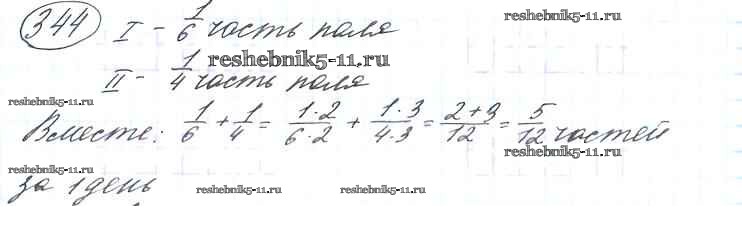 344 I - 1/6 часть поля
reshebnik5-11.ru
II - 1/4 часть поля
reshebnik5-11.ru
reshebnik5-11.ru
Вместе: 1/6 + 1/4 = 1·2/6·2 + 1·3/4·3 = 2+3/12 = 5/12 частей
reshebnik5-11.ru
reshebnik5-11.ru
за 1 день
reshebnik5-11.ru
reshebnik5-11.ru